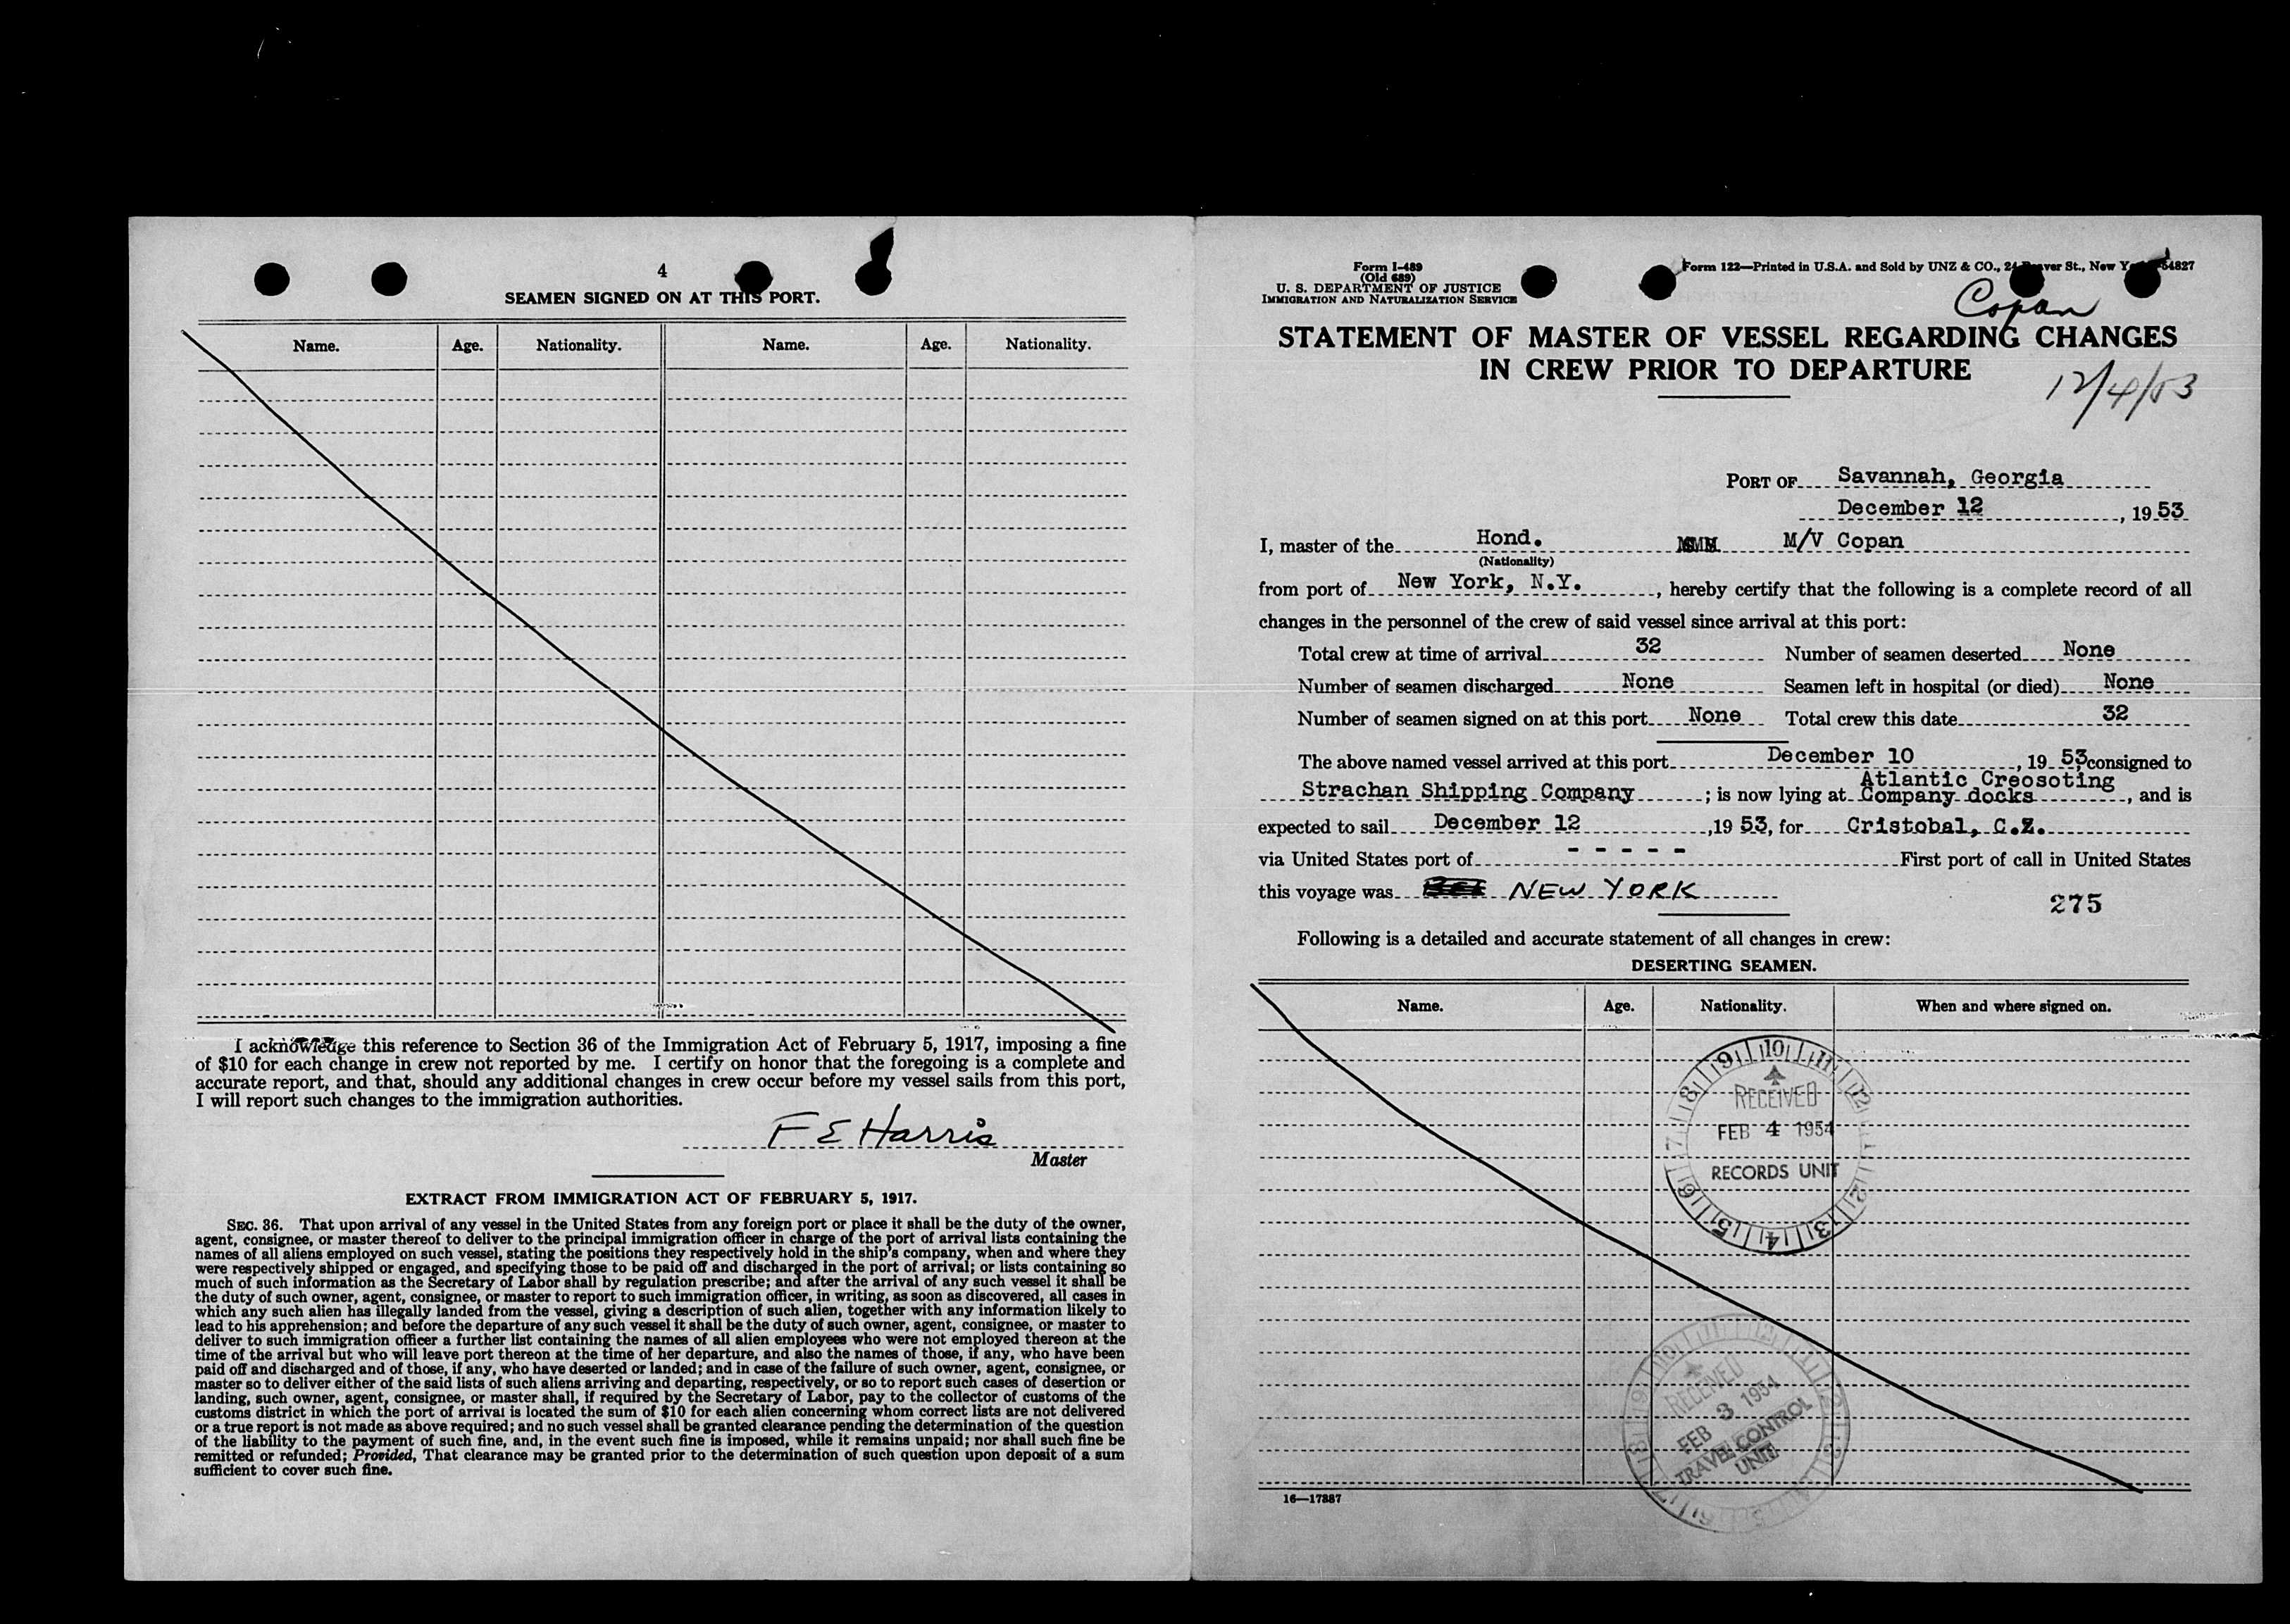 4
SEAMEN SIGNED ON AT THIS PORT.
Name. Age. Nationality. Name. Age. Nationality.
I acknowledge this reference to Section 36 of the Immigration Act of February 5, 1917, imposing a fine
of $10 for each change in crew not reported by me. I certify on honor that the foregoing is a complete and
accurate report, and that, should any additional changes in crew occur before my vessel sails from this port,
I will report such changes to the immigration authorities.
F E Harris
Master
EXTRACT FROM IMMIGRATION ACT OF FEBRUARY 5, 1917.
SEC. 36. That upon arrival of any vessel in the United States from any foreign port or place it shall be the duty of the owner,
agent, consignee, or master thereof to deliver to the principal immigration officer in charge of the port of arrival lists containing the
names of all aliens employed on such vessel, stating the positions they respectively hold in the ship's company, when and where they
were respectively shipped or engaged, and specifying those to be paid off and discharged in the port of arrival; or lists containing so
much of such information as the Secretary of Labor shall by regulation prescribe; and after the arrival of any such vessel it shall be
the duty of such owner, agent, consignee, or master to report to such immigration officer, in writing, as soon as discovered, all cases in
which any such alien has illegally landed from the vessel, giving a description of such alien, together with any information likely to
lead to his apprehension; and before the departure of any such vessel it shall be the duty of such owner, agent, consignee, or master to
deliver to such immigration officer a further list containing the names of all alien employees who were not employed thereon at the
time of the arrival but who will leave port thereon at the time of her departure, and also the names of those, if any, who have been
paid off and discharged and of those, if any, who have deserted or landed; and in case of the failure of such owner, agent, consignee, or
master so to deliver either of the said lists of such aliens arriving and departing, respectively, or so to report such cases of desertion or
landing, such owner, agent, consignee, or master shall, if required by the Secretary of Labor, pay to the collector of customs of the
customs district in which the port of arrival is located the sum of $10 for each alien concerning whom correct lists are not delivered
or a true report is not made as above required; and no such vessel shall be granted clearance pending the determination of the question
of the liability to the payment of such fine, and, in the event such fine is imposed, while it remains unpaid; nor shall such fine be
remitted or refunded; Provided, That clearance may be granted prior to the determination of such question upon deposit of a sum
sufficient to cover such fine.
Form I-489
(Old 689)
U. S. DEPARTMENT OF JUSTICE
IMMIGRATION AND NATURALIZATION SERVICE
Form 122—Printed in U.S.A. and Sold by UNZ & CO., St., New
Copan
STATEMENT OF MASTER OF VESSEL REGARDING CHANGES
IN CREW PRIOR TO DEPARTURE
12/4/53
PORT OF Savannah, Georgia
December 12, 1953
I, master of the Hond. M/V Copan
(Nationality)
from port of New York, N.Y., hereby certify that the following is a complete record of all
changes in the personnel of the crew of said vessel since arrival at this port:
Total crew at time of arrival 32 Number of seamen deserted None
Number of seamen discharged None Seamen left in hospital (or died) None
Number of seamen signed on at this port None Total crew this date 32
The above named vessel arrived at this port December 10, 19 53 consigned to
Strachan Shipping Company; is now lying at Atlantic Creosoting Company docks, and is
expected to sail December 12, 19 53, for Cristobal, C.Z.
via United States port of - - - - - First port of call in United States
this voyage was NEW YORK
275
Following is a detailed and accurate statement of all changes in crew:
DESERTING SEAMEN.
Name. Age. Nationality. When and where signed on.
RECEIVED
FEB 4 1954
RECORDS UNIT
RECEIVED
FEB 3 1954
TRAVEL CONTROL
UNIT
16—17887